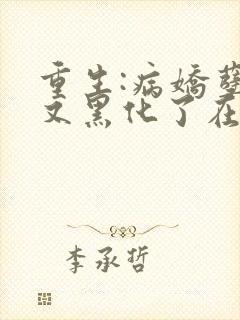 重生:病娇孽
又黑化了在
李承哲